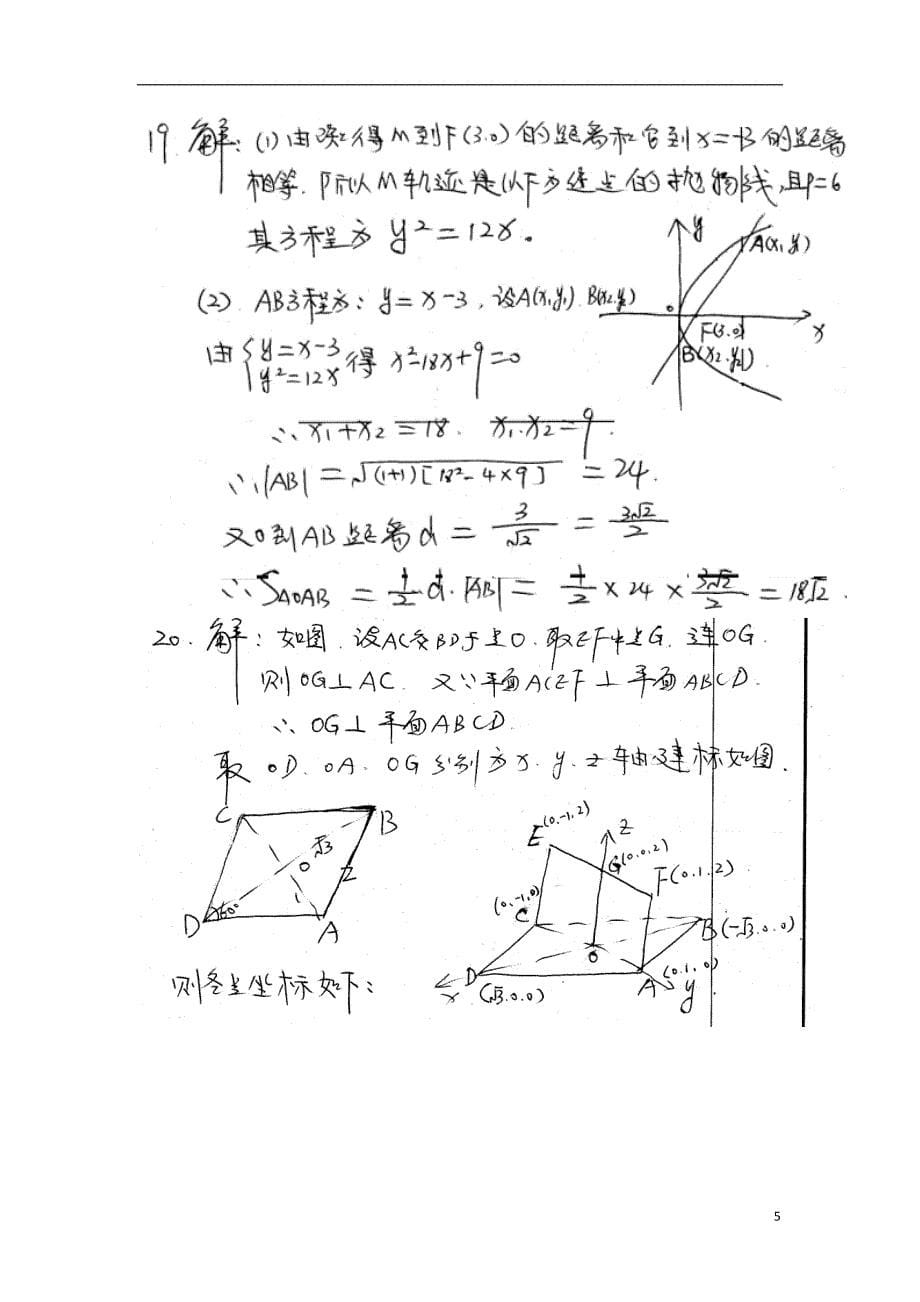 19. 解: (1) 由题得 M到F(3.0)的距离和它到x=-3的距离
相等. 所以M轨迹是以F为焦点的抛物线,且P=6
其方程为 y²=12x.
(2) AB方程为: y=x-3, 设A(x₁,y₁). B(x₂.y₂)
由{y=x-3 y²=12x 得 x²-18x+9=0
∴ x₁+x₂=18. x₁.x₂=9.
∴|AB|=√(1+1)[18²-4×9] =24.
又O到AB距离d= 3/√2 = 3√2/2
∴S△OAB = 1/2 d.|AB|= 1/2 × 24 × 3√2/2 = 18√2.
y
A(x₁ y₁)
o
F(3.0)
x
B(x₂.y₂)
20. 解: 如图.设AC交BD于点O.取EF中点G.连OG.
则OG⊥AC. 又∵平面ACEF⊥平面ABCD.
∴ OG⊥平面ABCD.
取 OD. OA. OG分别为x.y.z轴建标如图.
C
B
√3
O
2
60°
D
A
E(0.-1,2)
z
G(0.0,2)
F(0.1.2)
(0,-1,0)
C
B(-√3.0.0)
O
D
(√3.0.0)
x
A
(0.1,0)
y
则各点坐标如下:
5